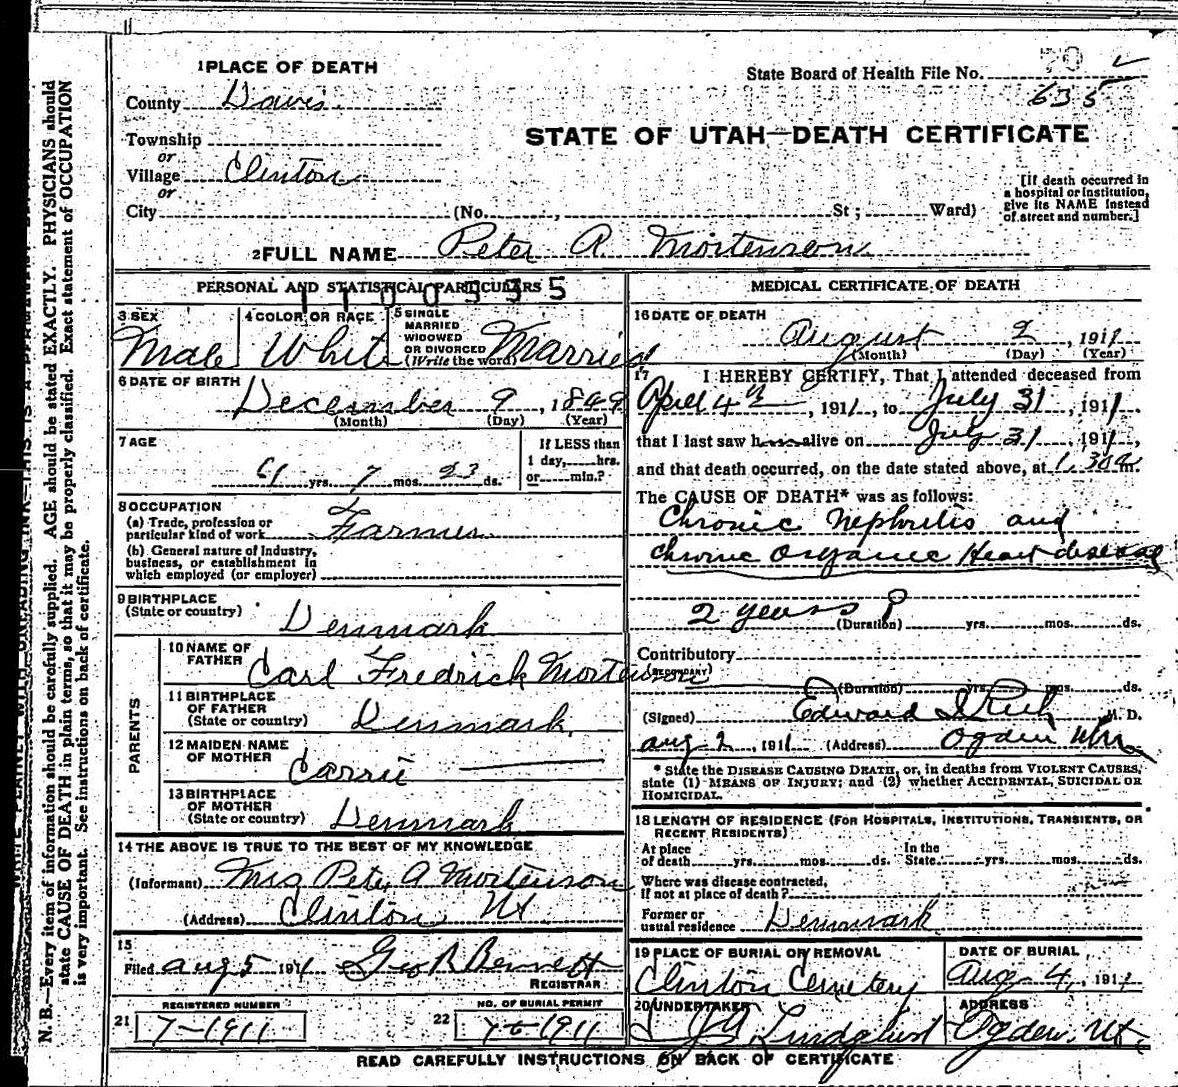 1 PLACE OF DEATH
County Davis
Township
or
Village Clinton
or
City (No. , St ; Ward)
State Board of Health File No. 70
635
STATE OF UTAH—DEATH CERTIFICATE
[If death occurred in
a hospital or institution,
give its NAME instead
of street and number.]
2 FULL NAME Peter A. Mortenson
PERSONAL AND STATISTICAL PARTICULARS
1100535
3 SEX
Male
4 COLOR OR RACE
White
5 SINGLE
MARRIED
WIDOWED
OR DIVORCED
(Write the word)
Married
6 DATE OF BIRTH
December 9, 1849
(Month) (Day) (Year)
7 AGE
61 yrs. 7 mos. 23 ds.
If LESS than
1 day, hrs.
or min.?
8 OCCUPATION
(a) Trade, profession or
particular kind of work Farmer
(b) General nature of Industry,
business, or establishment in
which employed (or employer)
9 BIRTHPLACE
(State or country) Denmark
PARENTS
10 NAME OF
FATHER Carl Fredrick Mortenson
11 BIRTHPLACE
OF FATHER
(State or country) Denmark.
12 MAIDEN NAME
OF MOTHER Carrie
13 BIRTHPLACE
OF MOTHER
(State or country) Denmark
14 THE ABOVE IS TRUE TO THE BEST OF MY KNOWLEDGE
(Informant) Mrs Peter A Mortenson
(Address) Clinton Ut
15
Filed Aug 5 1911 Geo R Bennett
REGISTRAR
REGISTERED NUMBER
21 7-1911
NO. OF BURIAL PERMIT
22 1911
MEDICAL CERTIFICATE OF DEATH
16 DATE OF DEATH
August 2, 1911
(Month) (Day) (Year)
17 I HEREBY CERTIFY, That I attended deceased from
April 4th, 1911, to July 31, 1911.
that I last saw him alive on July 31, 1911,
and that death occurred, on the date stated above, at 1.30 a m.
The CAUSE OF DEATH* was as follows:
Chronic Nephritis and
Chronic Organic Heart disease
2 years ?
(Duration) yrs. mos. ds.
Contributory
(SECONDARY)
(Duration) yrs. mos. ds.
(Signed) Edward I Rich M. D.
Aug 2, 1911 (Address) Ogden Utah
* State the DISEASE CAUSING DEATH, or, in deaths from VIOLENT CAUSES,
state (1) MEANS OF INJURY; and (2) whether ACCIDENTAL, SUICIDAL OR
HOMICIDAL.
18 LENGTH OF RESIDENCE (FOR HOSPITALS, INSTITUTIONS, TRANSIENTS, OR
RECENT RESIDENTS)
At place
of death yrs. mos. ds.
In the
State yrs. mos. ds.
Where was disease contracted,
if not at place of death?
Former or
usual residence Denmark
19 PLACE OF BURIAL OR REMOVAL
Clinton Cemetery
DATE OF BURIAL
Aug 4, 1911
20 UNDERTAKER
Lindquist
ADDRESS
Ogden. Ut.
READ CAREFULLY INSTRUCTIONS ON BACK OF CERTIFICATE
N. B.—Every item of information should be carefully supplied. AGE should be stated EXACTLY. PHYSICIANS should
state CAUSE OF DEATH in plain terms, so that it may be properly classified. Exact statement of OCCUPATION
is very important. See instructions on back of certificate.